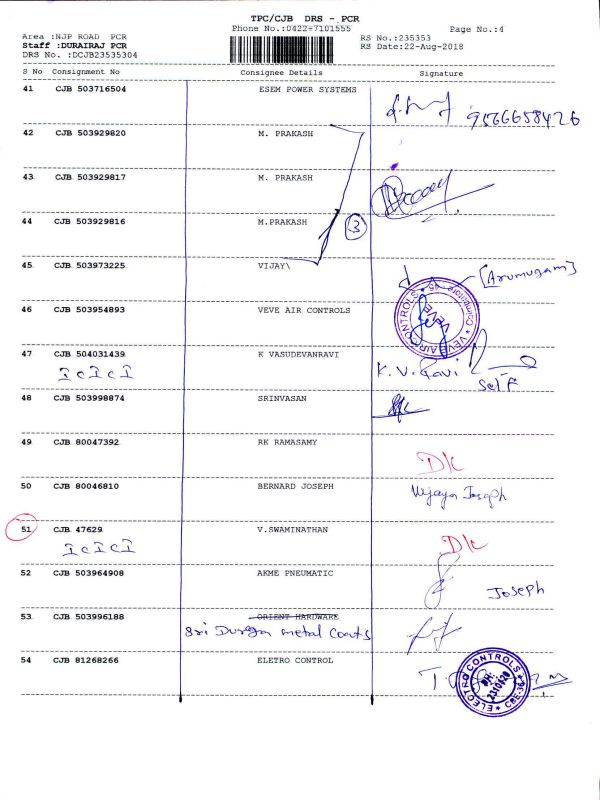 TPC/CJB DRS - PCR
Phone No.:0422-7101555 Page No.:4
Area :NJP ROAD PCR RS No.:235353
Staff :DURAIRAJ PCR RS Date:22-Aug-2018
DRS No. :DCJB23535304
S No Consignment No Consignee Details Signature
41 CJB 503716504 ESEM POWER SYSTEMS
9566658426
42 CJB 503929820 M. PRAKASH
43 CJB 503929817 M. PRAKASH
44 CJB 503929816 M.PRAKASH
3
45 CJB 503973225 VIJAY\
[Arumugam]
46 CJB 503954893 VEVE AIR CONTROLS
VEVE AIR CONTROLS * Coimbatore
47 CJB 504031439 K VASUDEVANRAVI
ICICI K.V.Ravi
Self
48 CJB 503998874 SRINVASAN
49 CJB 80047392 RK RAMASAMY
D/C
50 CJB 80046810 BERNARD JOSEPH Vijaya Joseph
51 CJB 47629 V.SWAMINATHAN
ICICI D/C
52 CJB 503964908 AKME PNEUMATIC
Joseph
53 CJB 503996188 ORIENT HARDWARE
Sri Durga metal Coats
54 CJB 81268266 ELETRO CONTROL
ELECTRO CONTROLS * CBE-36 * PH: 2310620